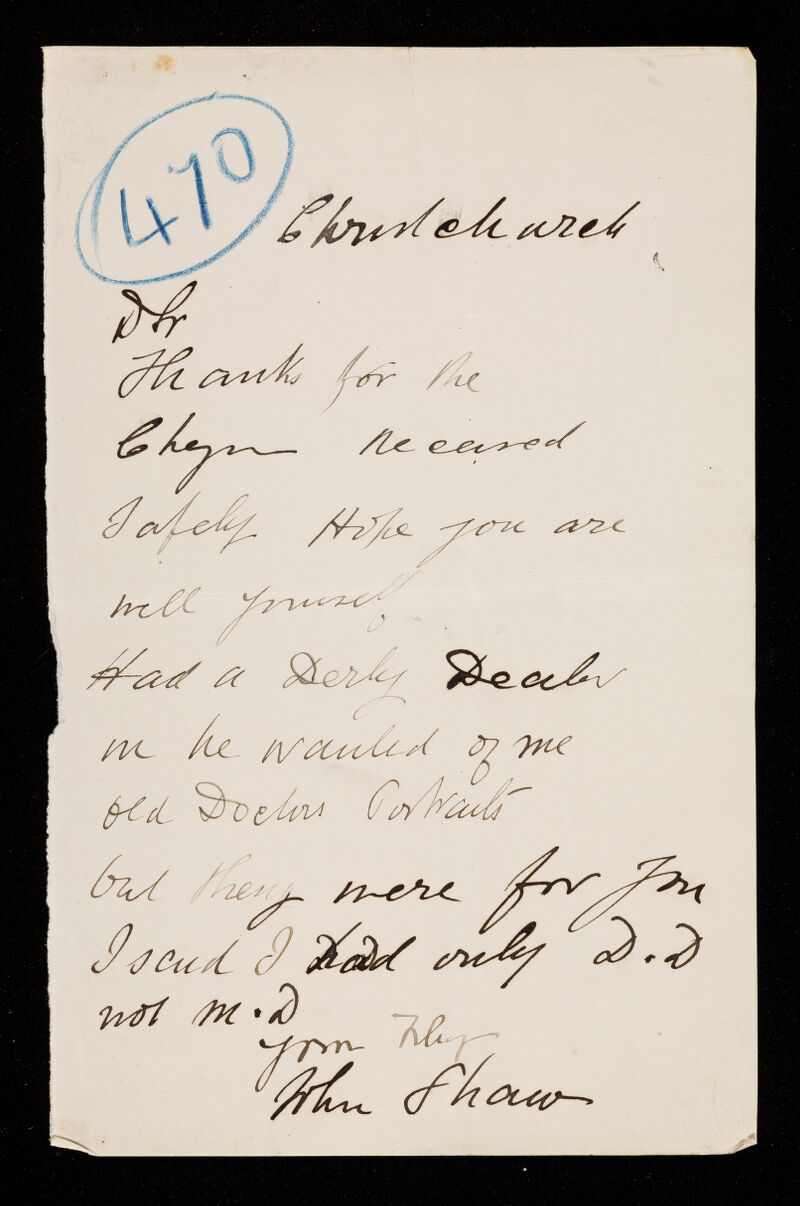 470
Christchurch
D Sr
Thanks for the
Cheqn Received
Safely Hope you are
well yourself
Had a Derby Dealer
in he wanted of me
old Doctors Portraits
but they were for you
I said I Had only D.D
not M.D
Yours
John Shaw